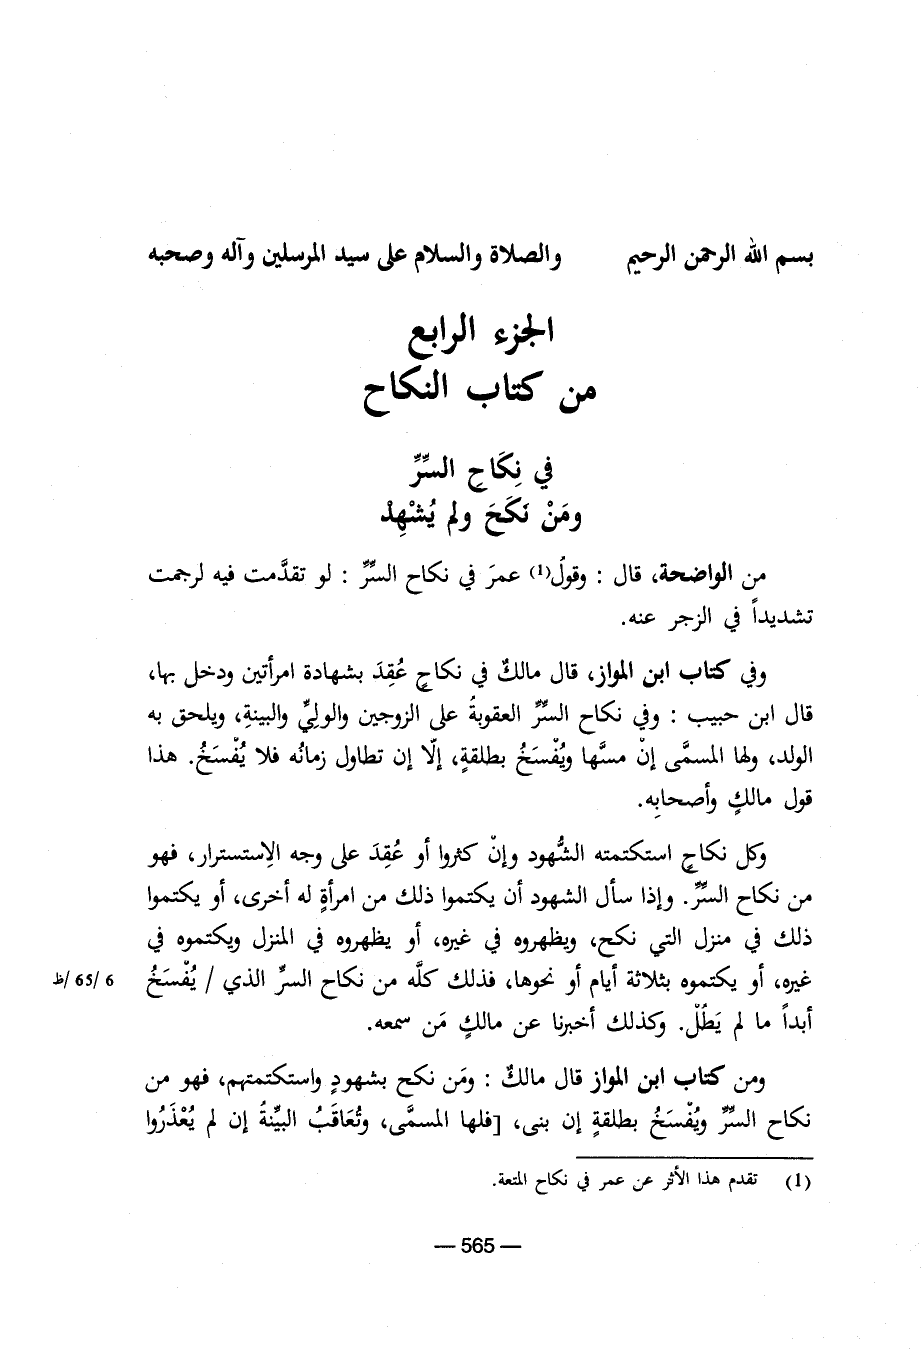 بسم الله الرحمن الرحيم والصلاة والسلام على سيد المرسلين وآله وصحبه
الجزء الرابع
من كتاب النكاح
في نِكَاحِ السِّرِّ
ومَنْ نَكَحَ ولم يُشْهِدْ
من الواضحة، قال : وقولُ(1) عمرَ في نكاح السِّرِّ : لو تقدَّمت فيه لرجمت
تشديداً في الزجر عنه.
وفي كتاب ابن المواز، قال مالكٌ في نكاحٍ عُقِدَ بشهادة امرأتين ودخل بها،
قال ابن حبيب : وفي نكاح السِّرِّ العقوبةُ على الزوجين والولِيِّ والبينةِ، ويلحق به
الولد، ولها المسمَّى إنْ مسَّها ويُفْسَخُ بطلقةٍ، إلّا إن تطاول زمانُه فلا يُفْسَخُ. هذا
قول مالكٍ وأصحابِه.
وكل نكاحٍ استكتمته الشُّهود وإنْ كثروا أو عُقِدَ على وجه الإستسرار، فهو
من نكاح السِّرِّ. وإذا سأل الشهود أن يكتموا ذلك من امرأةٍ له أخرى، أو يكتموا
ذلك في منزل التي نكح، ويظهروه في غيره، أو يظهروه في المنزل ويكتموه في
غيره، أو يكتموه بثلاثة أيام أو نحوها، فذلك كلَّه من نكاح السرِّ الذي / يُفْسَخُ 6 /65 /ظ
أبداً ما لم يَطُلْ. وكذلك أخبرنا عن مالكٍ مَن سمعه.
ومن كتاب ابن المواز قال مالكٌ : ومَن نكح بشهودٍ واستكتمتهم، فهو من
نكاح السِّرِّ ويُفْسَخُ بطلقةٍ إن بنى، [فلها المسمَّى، وتُعَاقَبُ البيِّنةُ إن لم يُعْذَرُوا
(1) تقدم هذا الأثر عن عمر في نكاح المتعة.
— 565 —